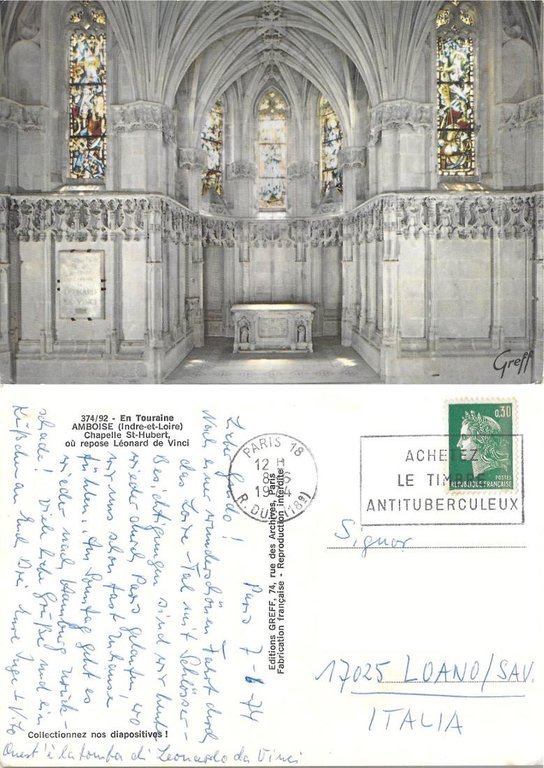 Greff
374/92 - En Touraine
AMBOISE (Indre-et-Loire)
Chapelle St-Hubert,
où repose Léonard de Vinci
PARIS 18
12 H
8-
19 4
R. DU (18e)
0,30
POSTES
REPUBLIQUE FRANÇAISE
ACHETEZ
LE TIMBRE
ANTITUBERCULEUX
Paris 7-6-74
Liebe
Nach einer wunderschönen Fahrt durch
das Loire-Tal mit Schlösser-
Besichtigungen sind wir heute
wieder durch Paris gelaufen, wo
wir uns schon fast zuhause
fühlen. Am Sonntag geht es
wieder nach Hamburg zurück -
schade! Viele liebe Grüße und ein
Küßchen Eure Inge + Vito
Quest'è la tomba di Leonardo da Vinci
Editions GREFF, 74, rue des Archives, Paris
Fabrication française - Reproduction interdite
Signor
17025 LOANO/SAV.
ITALIA
Collectionnez nos diapositives !